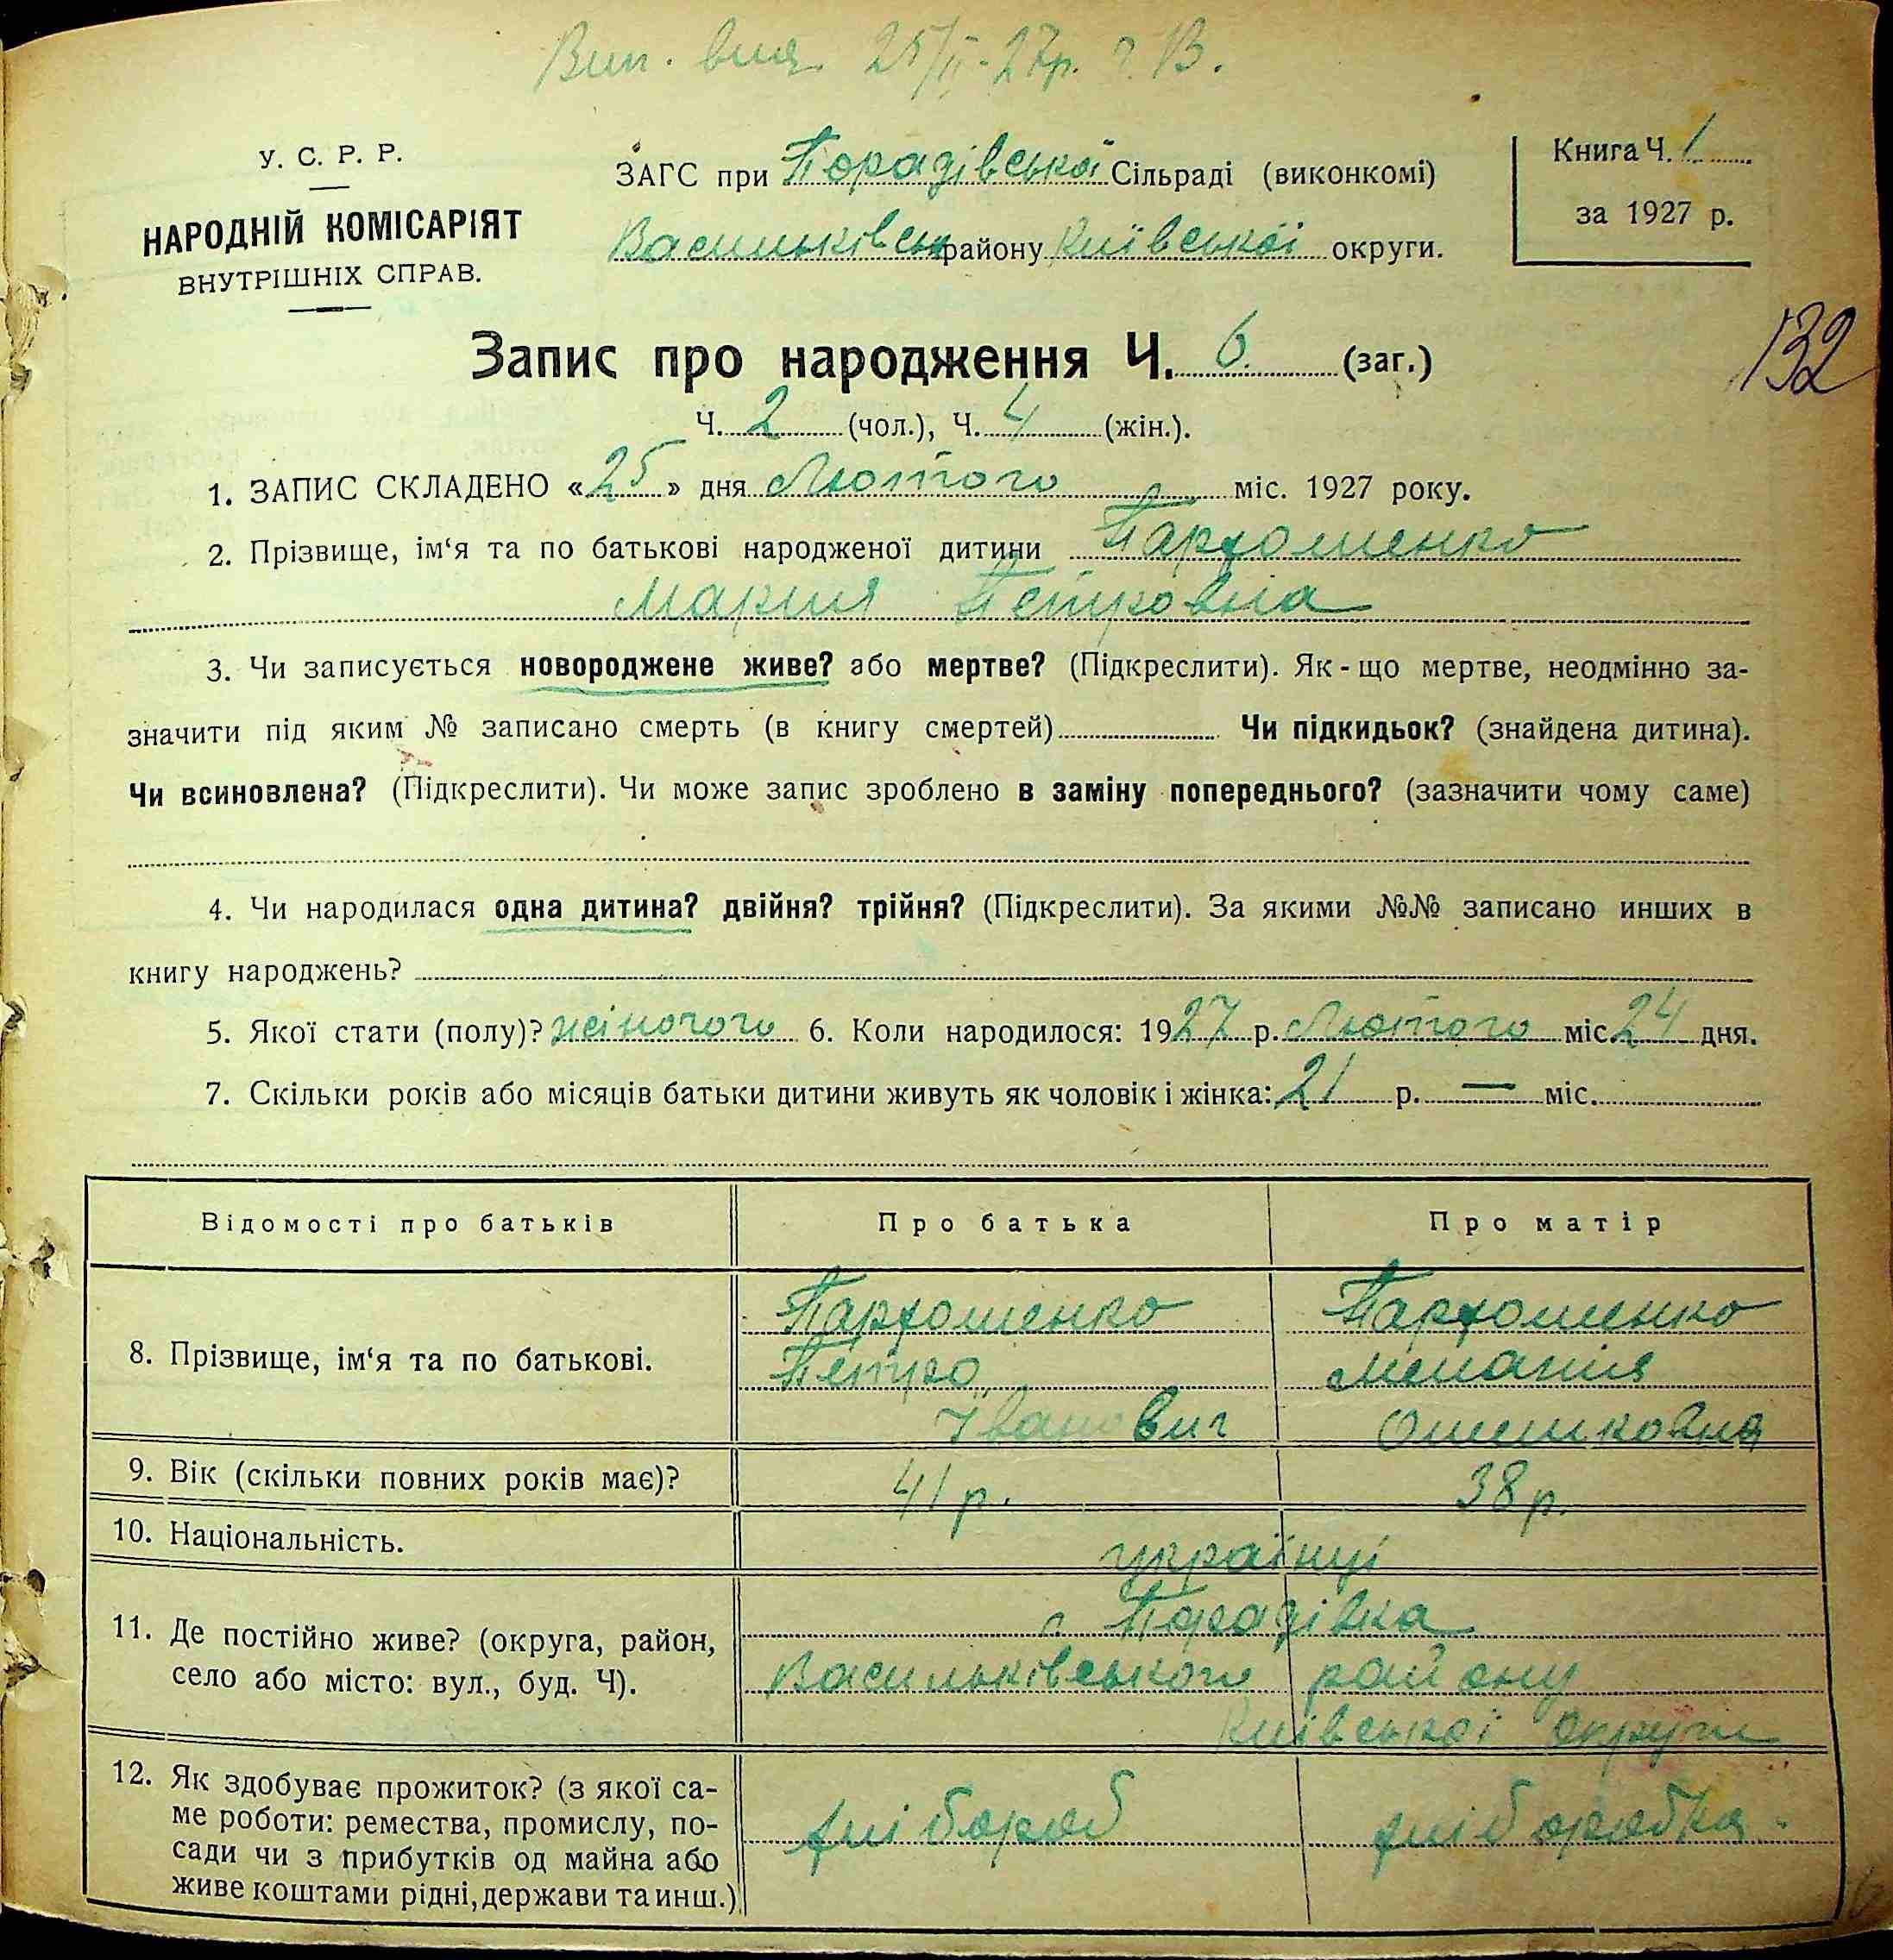 Вип. вид. 25/II-27р. Ч. В.
У. С. Р. Р.
НАРОДНІЙ КОМІСАРІЯТ
ВНУТРІШНІХ СПРАВ.
ЗАГС при Порадівській Сільраді (виконкомі)
Васильківськ району Київської округи.
Книга Ч. 1
за 1927 р.
132
Запис про народження Ч. 6. (заг.)
Ч. 2 (чол.), Ч. 4 (жін.).
1. ЗАПИС СКЛАДЕНО «25» дня Лютого міс. 1927 року.
2. Прізвище, ім‘я та по батькові народженої дитини Пархоменко
Мария Петровна
3. Чи записується новороджене живе? або мертве? (Підкреслити). Як-що мертве, неодмінно за-
значити під яким № записано смерть (в книгу смертей) Чи підкидьок? (знайдена дитина).
Чи всиновлена? (Підкреслити). Чи може запис зроблено в заміну попереднього? (зазначити чому саме)
4. Чи народилася одна дитина? двійня? трійня? (Підкреслити). За якими №№ записано инших в
книгу народжень?
5. Якої стати (полу)? жіночого 6. Коли народилося: 1927 р. Лютого міс. 24 дня.
7. Скільки років або місяців батьки дитини живуть як чоловік і жінка: 21 р. — міс.
Відомості про батьків Про батька Про матір
8. Прізвище, ім‘я та по батькові.
Пархоменко
Петро
Іванович
Пархоменко
Мелания
9. Вік (скільки повних років має)? 41 р. 38 р.
10. Національність. українці
11. Де постійно живе? (округа, район,
село або місто: вул., буд. Ч).
с. Порадівка
Васильківського району
Київської округи
12. Як здобуває прожиток? (з якої са-
ме роботи: ремества, промислу, по-
сади чи з прибутків од майна або
живе коштами рідні, держави та инш.)
хлібороб
хліборобка.